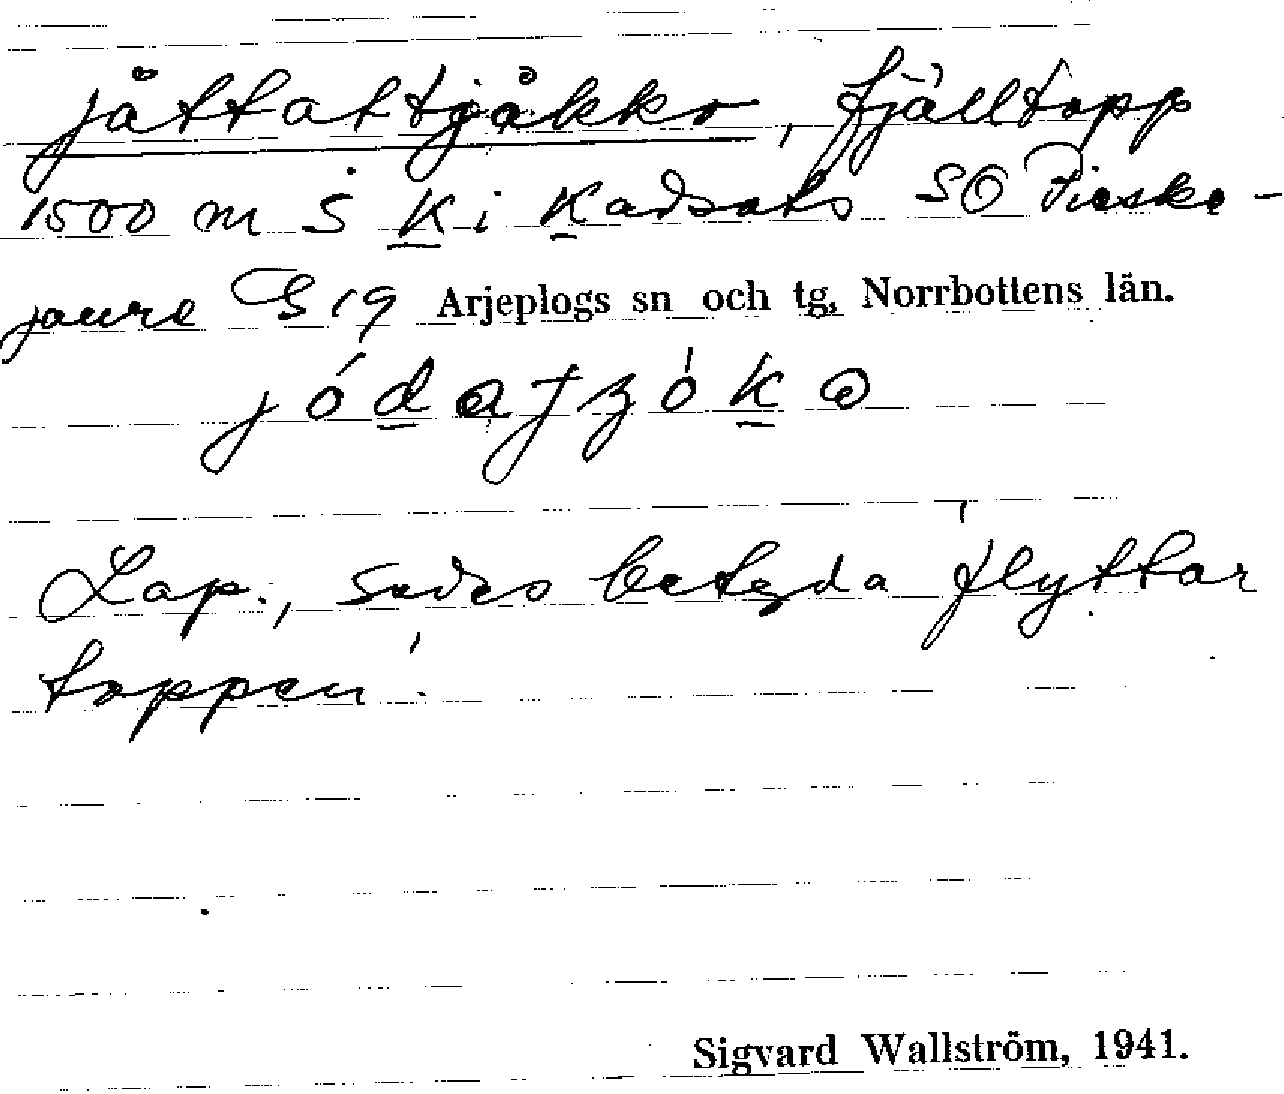 jåttattjåkko, fjälltopp
1500 m S K i Kadsats SO Pieske-
jaure G 19 Arjeplogs sn och tg, Norrbottens län.
Lap., sades betyda 'flyttar
toppen'.
Sigvard Wallström, 1941.